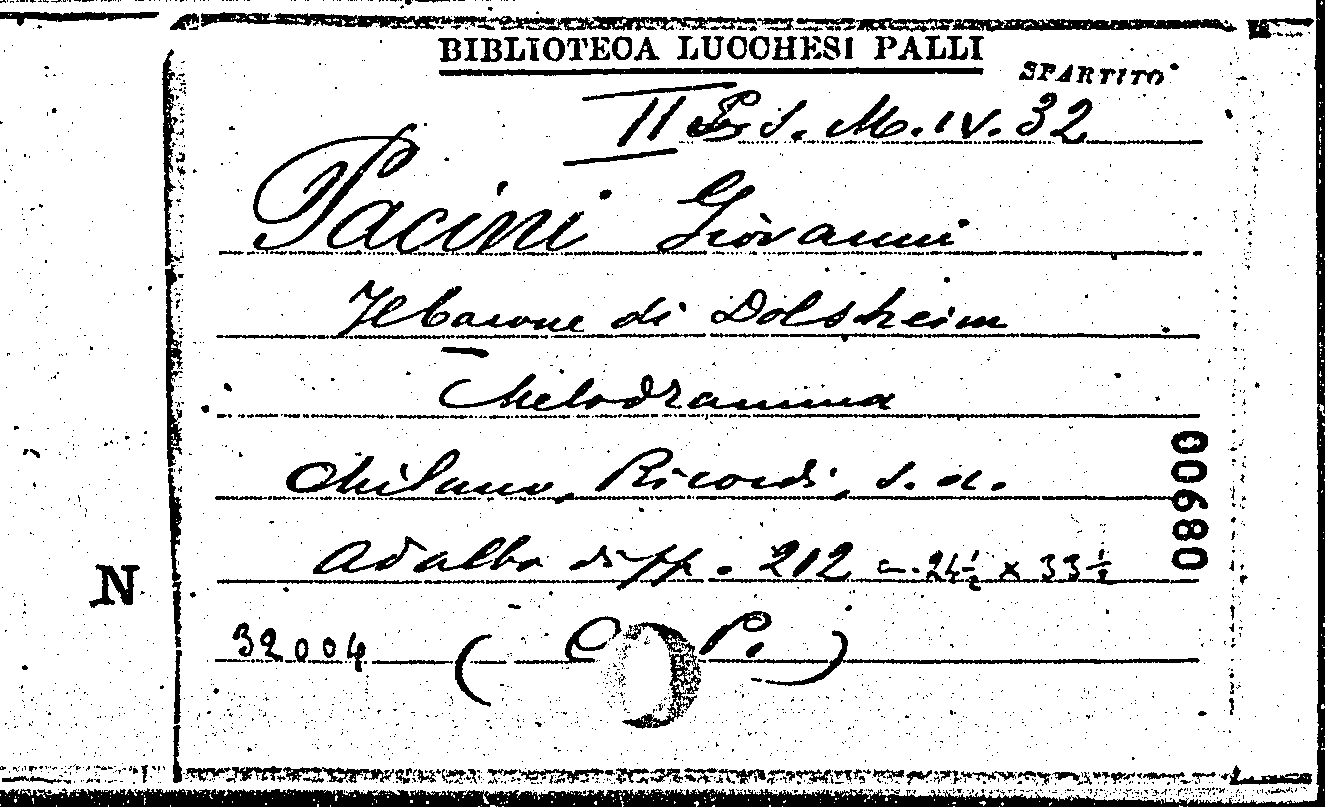 BIBLIOTECA LUCCHESI PALLI
SPARTITO
II S. M. IV. 32
Pacini Giovanni
Il barone di Dolsheim
Melodramma
Milano, Ricordi, s. d.
ad albo di pp. 212 c. 24½ x 33½
32004 ( C P. )
00680
N